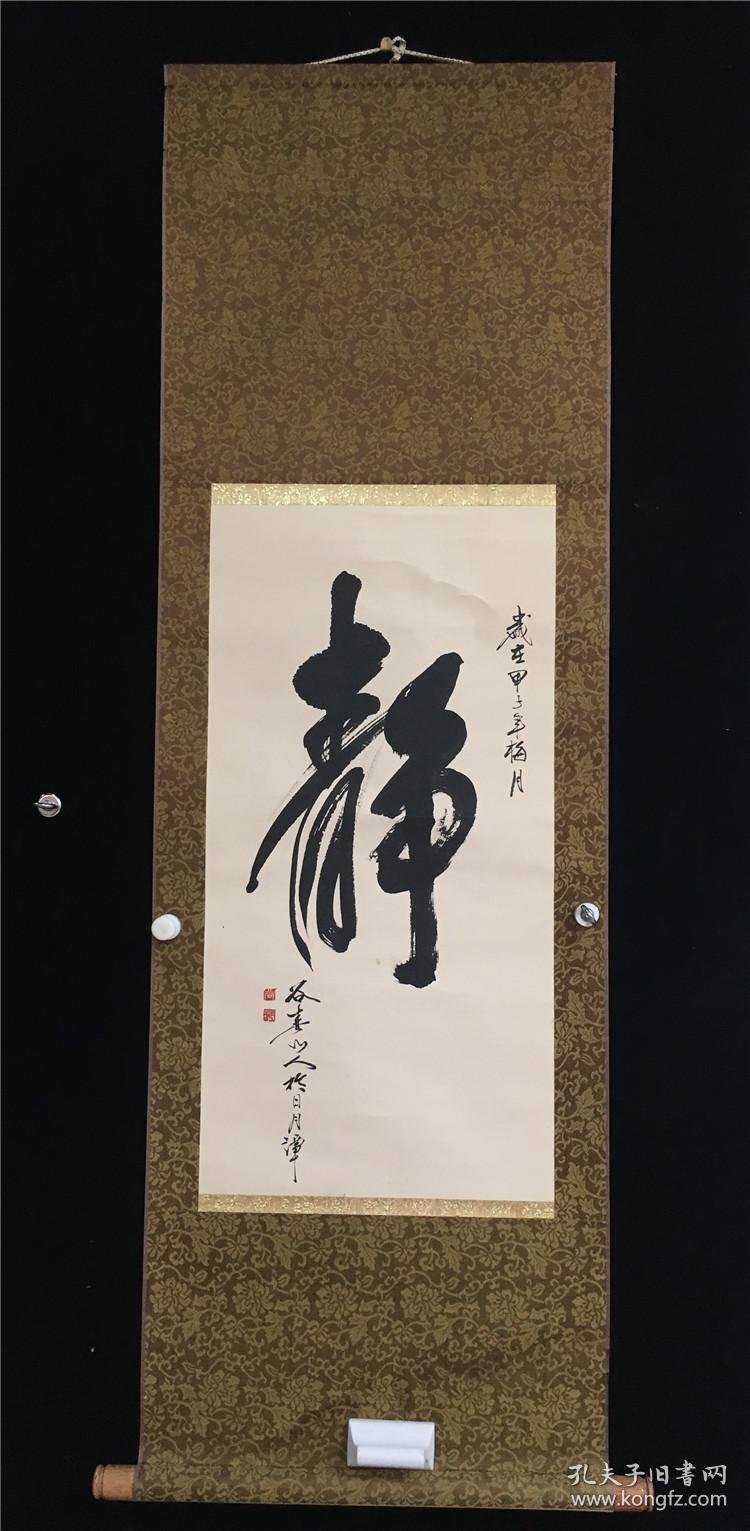 歲在甲子年梅月
靜
谷春山人於日月潭
孔夫子旧書网
www.kongfz.com